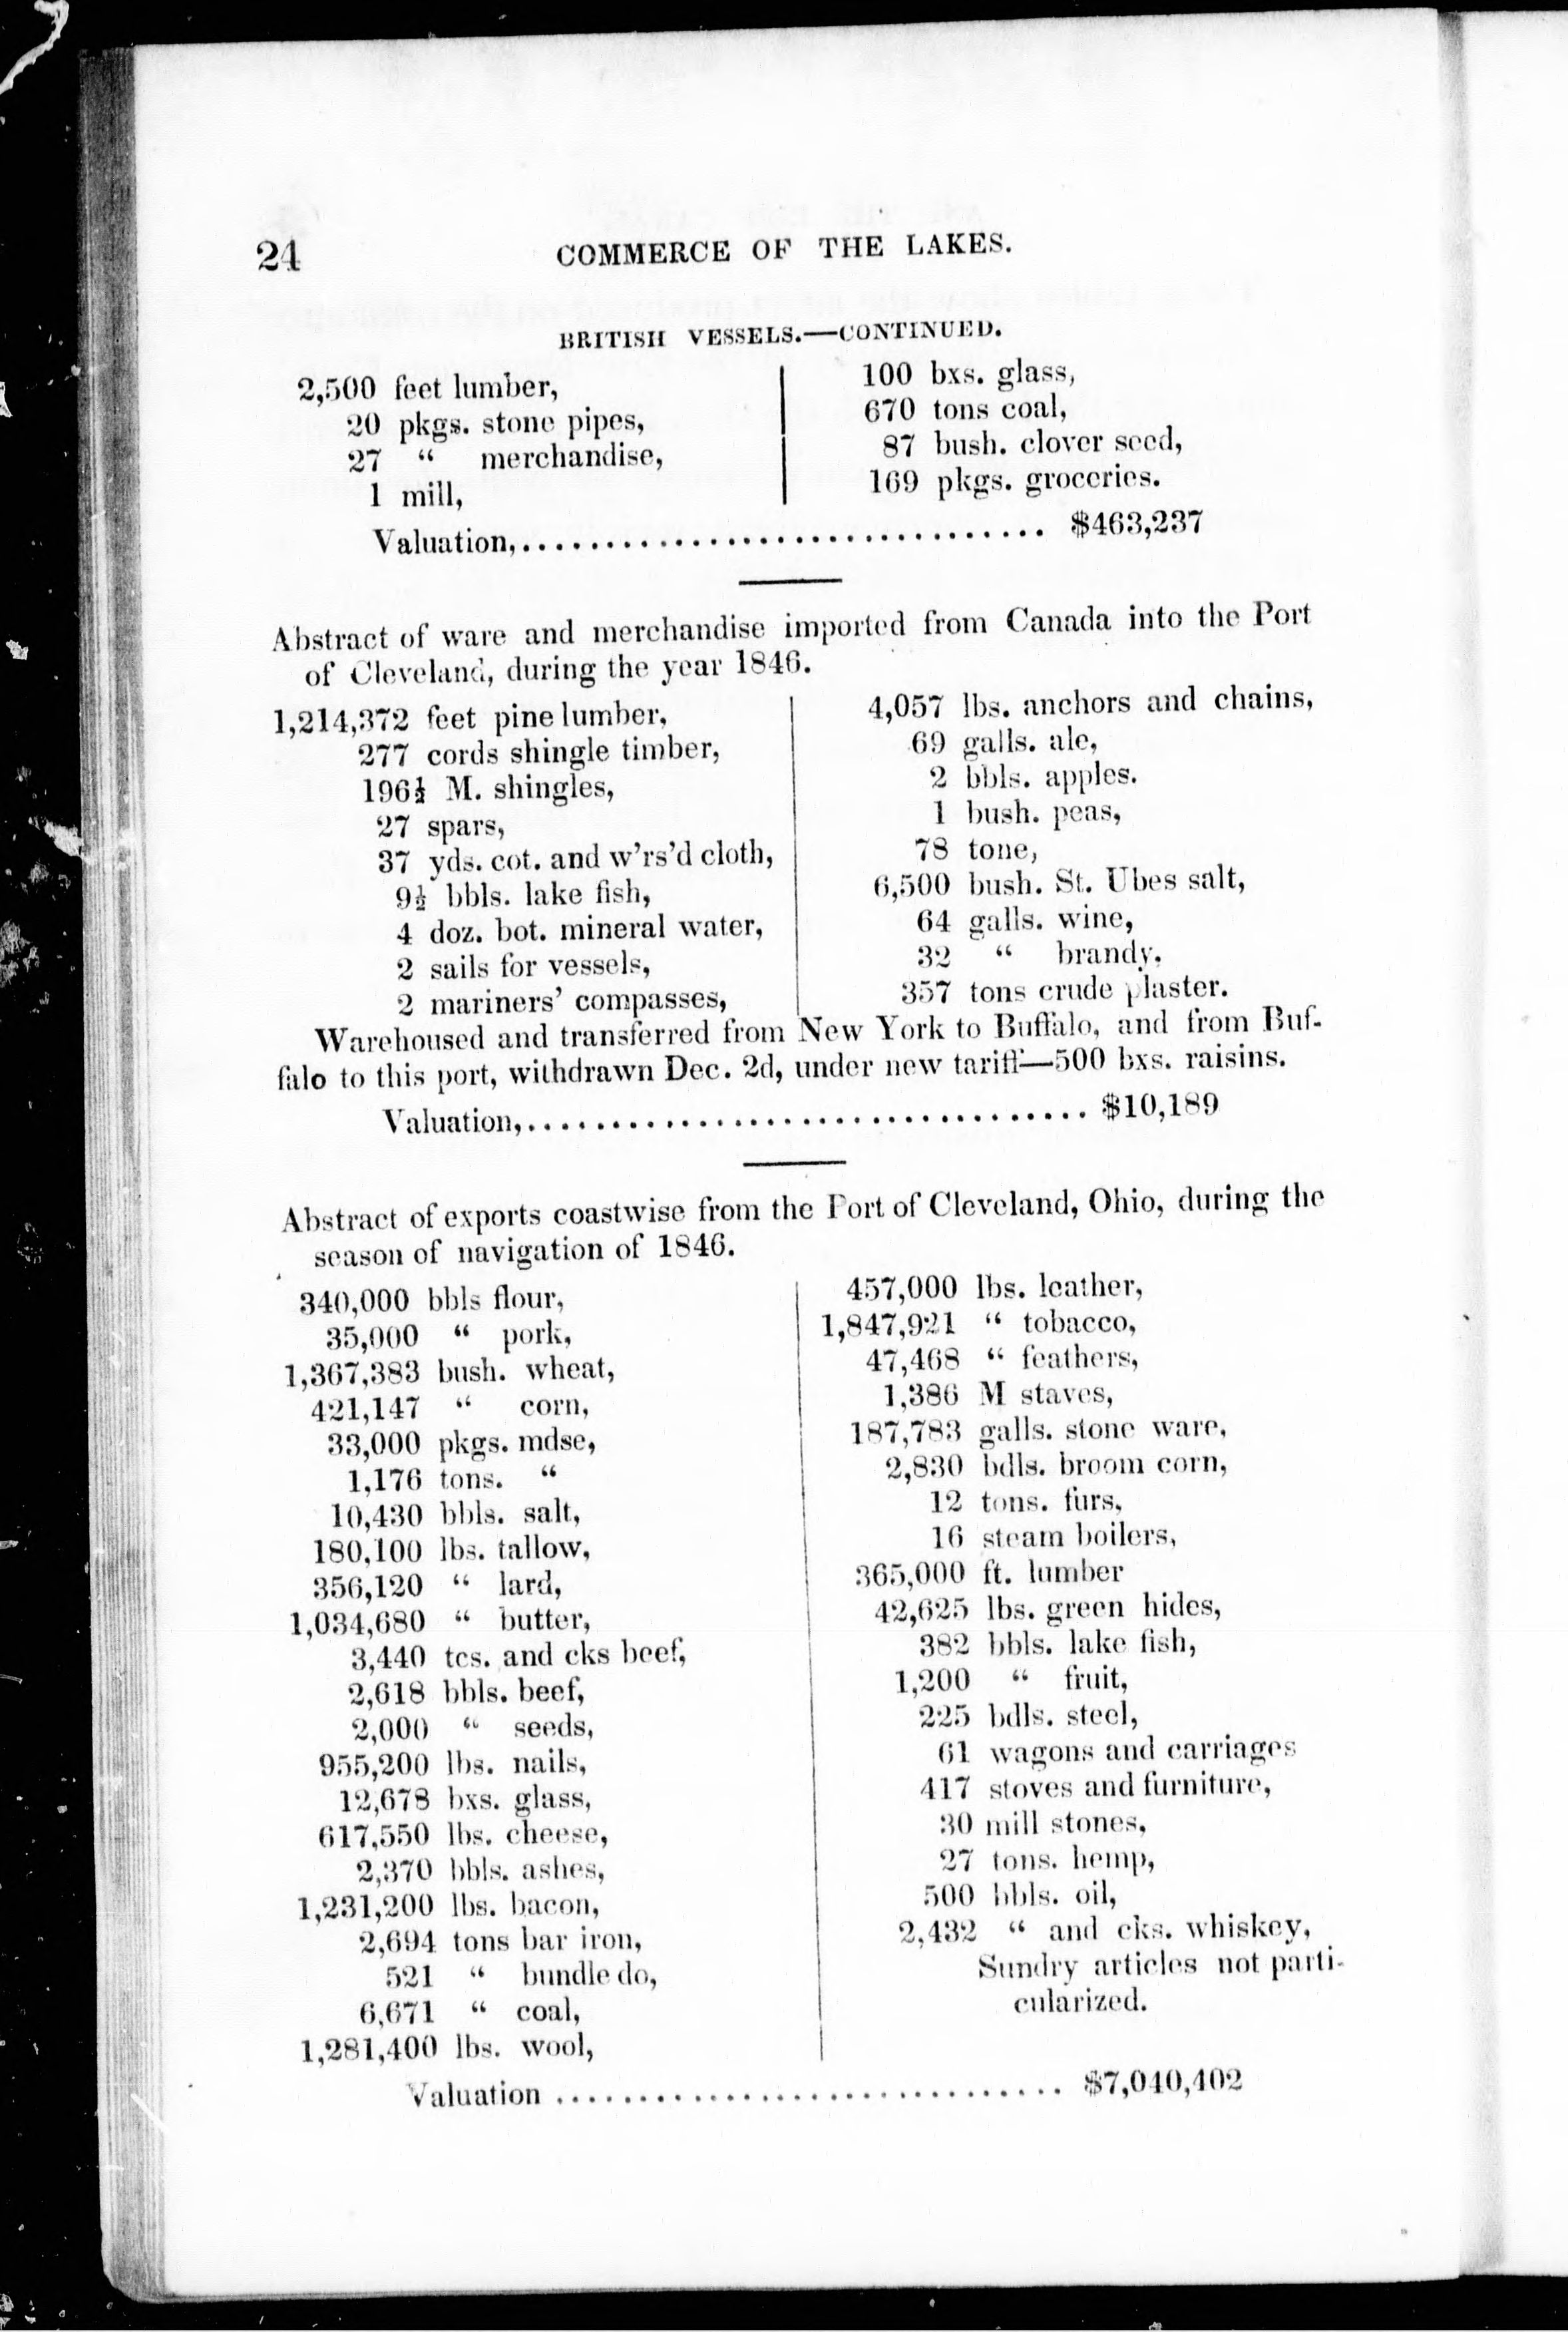 24
COMMERCE OF THE LAKES.
BRITISH VESSELS.—CONTINUED.
2,500 feet lumber,
20 pkgs. stone pipes,
27 “ merchandise,
1 mill,
100 bxs. glass,
670 tons coal,
87 bush. clover seed,
169 pkgs. groceries.
Valuation,................................ $463,237
Abstract of ware and merchandise imported from Canada into the Port
of Cleveland, during the year 1846.
1,214,372 feet pine lumber,
277 cords shingle timber,
196½ M. shingles,
27 spars,
37 yds. cot. and w’rs’d cloth,
9½ bbls. lake fish,
4 doz. bot. mineral water,
2 sails for vessels,
2 mariners’ compasses,
4,057 lbs. anchors and chains,
69 galls. ale,
2 bbls. apples.
1 bush. peas,
78 tone,
6,500 bush. St. Ubes salt,
64 galls. wine,
32 “ brandy,
357 tons crude plaster.
Warehoused and transferred from New York to Buffalo, and from Buf-
falo to this port, withdrawn Dec. 2d, under new tariff—500 bxs. raisins.
Valuation,.................................. $10,189
Abstract of exports coastwise from the Port of Cleveland, Ohio, during the
season of navigation of 1846.
340,000 bbls flour,
35,000 “ pork,
1,367,383 bush. wheat,
421,147 “ corn,
33,000 pkgs. mdse,
1,176 tons. “
10,430 bbls. salt,
180,100 lbs. tallow,
356,120 “ lard,
1,034,680 “ butter,
3,440 tcs. and cks beef,
2,618 bbls. beef,
2,000 “ seeds,
955,200 lbs. nails,
12,678 bxs. glass,
617,550 lbs. cheese,
2,370 bbls. ashes,
1,231,200 lbs. bacon,
2,694 tons bar iron,
521 “ bundle do,
6,671 “ coal,
1,281,400 lbs. wool,
457,000 lbs. leather,
1,847,921 “ tobacco,
47,468 “ feathers,
1,386 M staves,
187,783 galls. stone ware,
2,830 bdls. broom corn,
12 tons. furs,
16 steam boilers,
365,000 ft. lumber
42,625 lbs. green hides,
382 bbls. lake fish,
1,200 “ fruit,
225 bdls. steel,
61 wagons and carriages
417 stoves and furniture,
30 mill stones,
27 tons. hemp,
500 bbls. oil,
2,432 “ and cks. whiskey,
Sundry articles not parti-
cularized.
Valuation .............................. $7,040,402